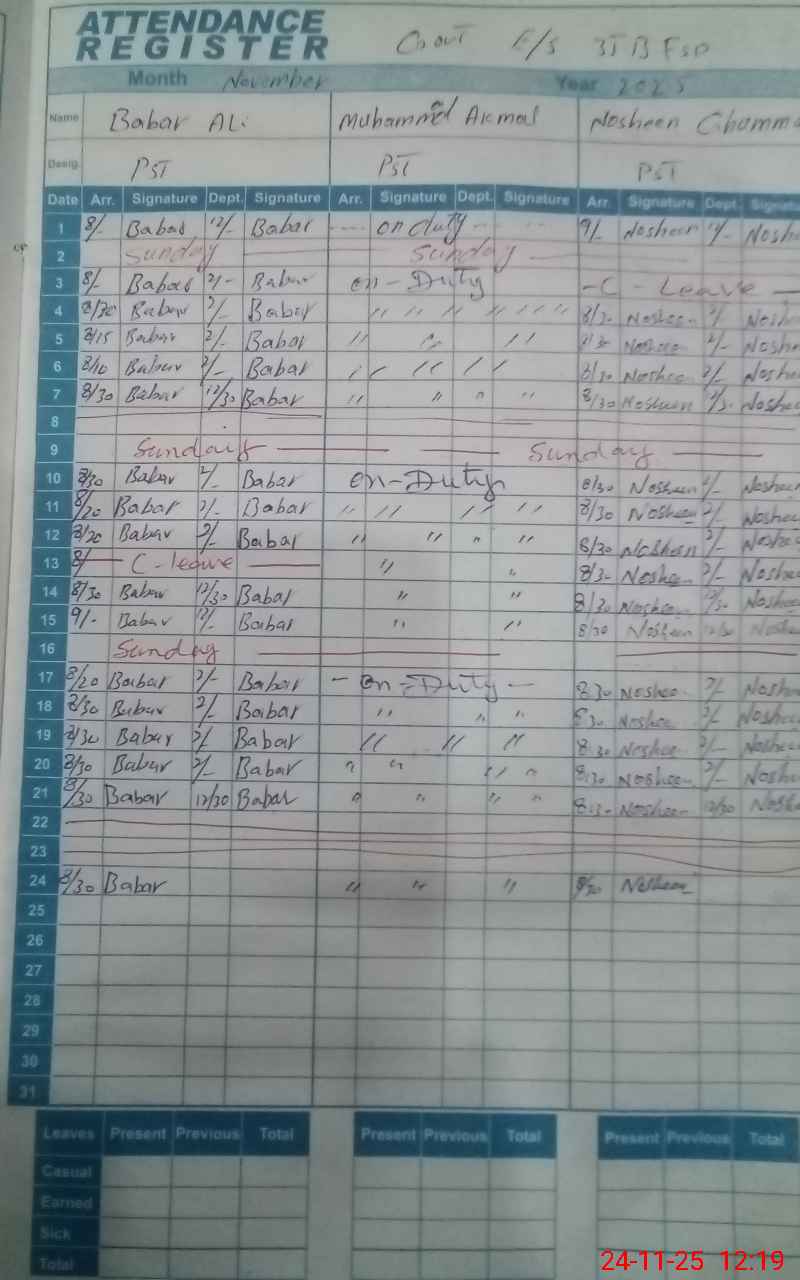 ATTENDANCE
REGISTER
E/S
Month November Year 2025
Name Babar Ali Muhammad Akmal Nosheen
Desig. PST PST PST
Date Arr. Signature Dept. Signature Arr. Signature Dept. Signature Arr. Signature Dept. Signatu
1 8/- Babar 12/- Babar on duty 9/- Nosheen Nosh
2 Sunday Sunday
3 8/- Babar 2/- Babar on-Duty C-Leave
4 8/30 Babar 2/- Babar " " " " " " " Nosheen 2/- Nosh
5 8/15 Babar 2/- Babar " " " Nosheen 2/- Nosh
6 8/10 Babar 2/- Babar " " " 8/30 Nosheen 2/- Nosh
7 8/30 Babar 12/30 Babar " " " " 8/30 Nosheen Noshe
8
9 Sunday Sunday
10 8/30 Babar 2/- Babar on-Duty 8/30 Nosheen 2/- Nosheen
11 8/20 Babar 2/- Babar " " " " 8/30 Nosheen 2/- Noshee
12 8/20 Babar 2/- Babar " " " " 8/30 Nosheen 2/- Noshe
13 8/ C-leave " " 8/30 Noshee 2/- Noshe
14 8/30 Babar 12/30 Babar " " 8/30 Nosheen Noshe
15 9/- Babar 12/- Babar " " 8/30 Nosheen 12/30 Noshe
16 Sunday
17 8/20 Babar 2/- Babar - on-Duty - 8.30 Noshee 2/- Nosh
18 8/30 Babar 2/- Babar " " " 8.30 Noshee 2/- Nosh
19 8/30 Babar 2/- Babar " " " 8.30 Noshee 2/- Nosh
20 8/30 Babar 2/- Babar " " " " 8.30 Noshee 2/- Nosh
21 8/30 Babar 12/30 Babar " " " " Nosheen 12/30 Nosh
22
23
24 8/30 Babar " " " 8/30 Nosheen
25
26
27
28
29
30
31
Leaves Present Previous Total Present Previous Total Present Previous Total
Casual
Earned
Sick
Total
24-11-25 12:19